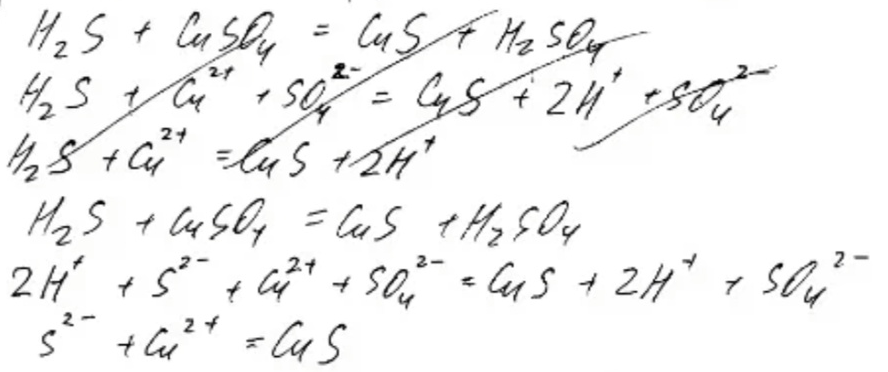 H₂S + CuSO₄ = CuS + H₂SO₄
H₂S + Cu²⁺ + SO₄²⁻ = CuS + 2H⁺ + SO₄²⁻
H₂S + Cu²⁺ = CuS + 2H⁺
H₂S + CuSO₄ = CuS + H₂SO₄
2H⁺ + S²⁻ + Cu²⁺ + SO₄²⁻ = CuS + 2H⁺ + SO₄²⁻
S²⁻ + Cu²⁺ = CuS